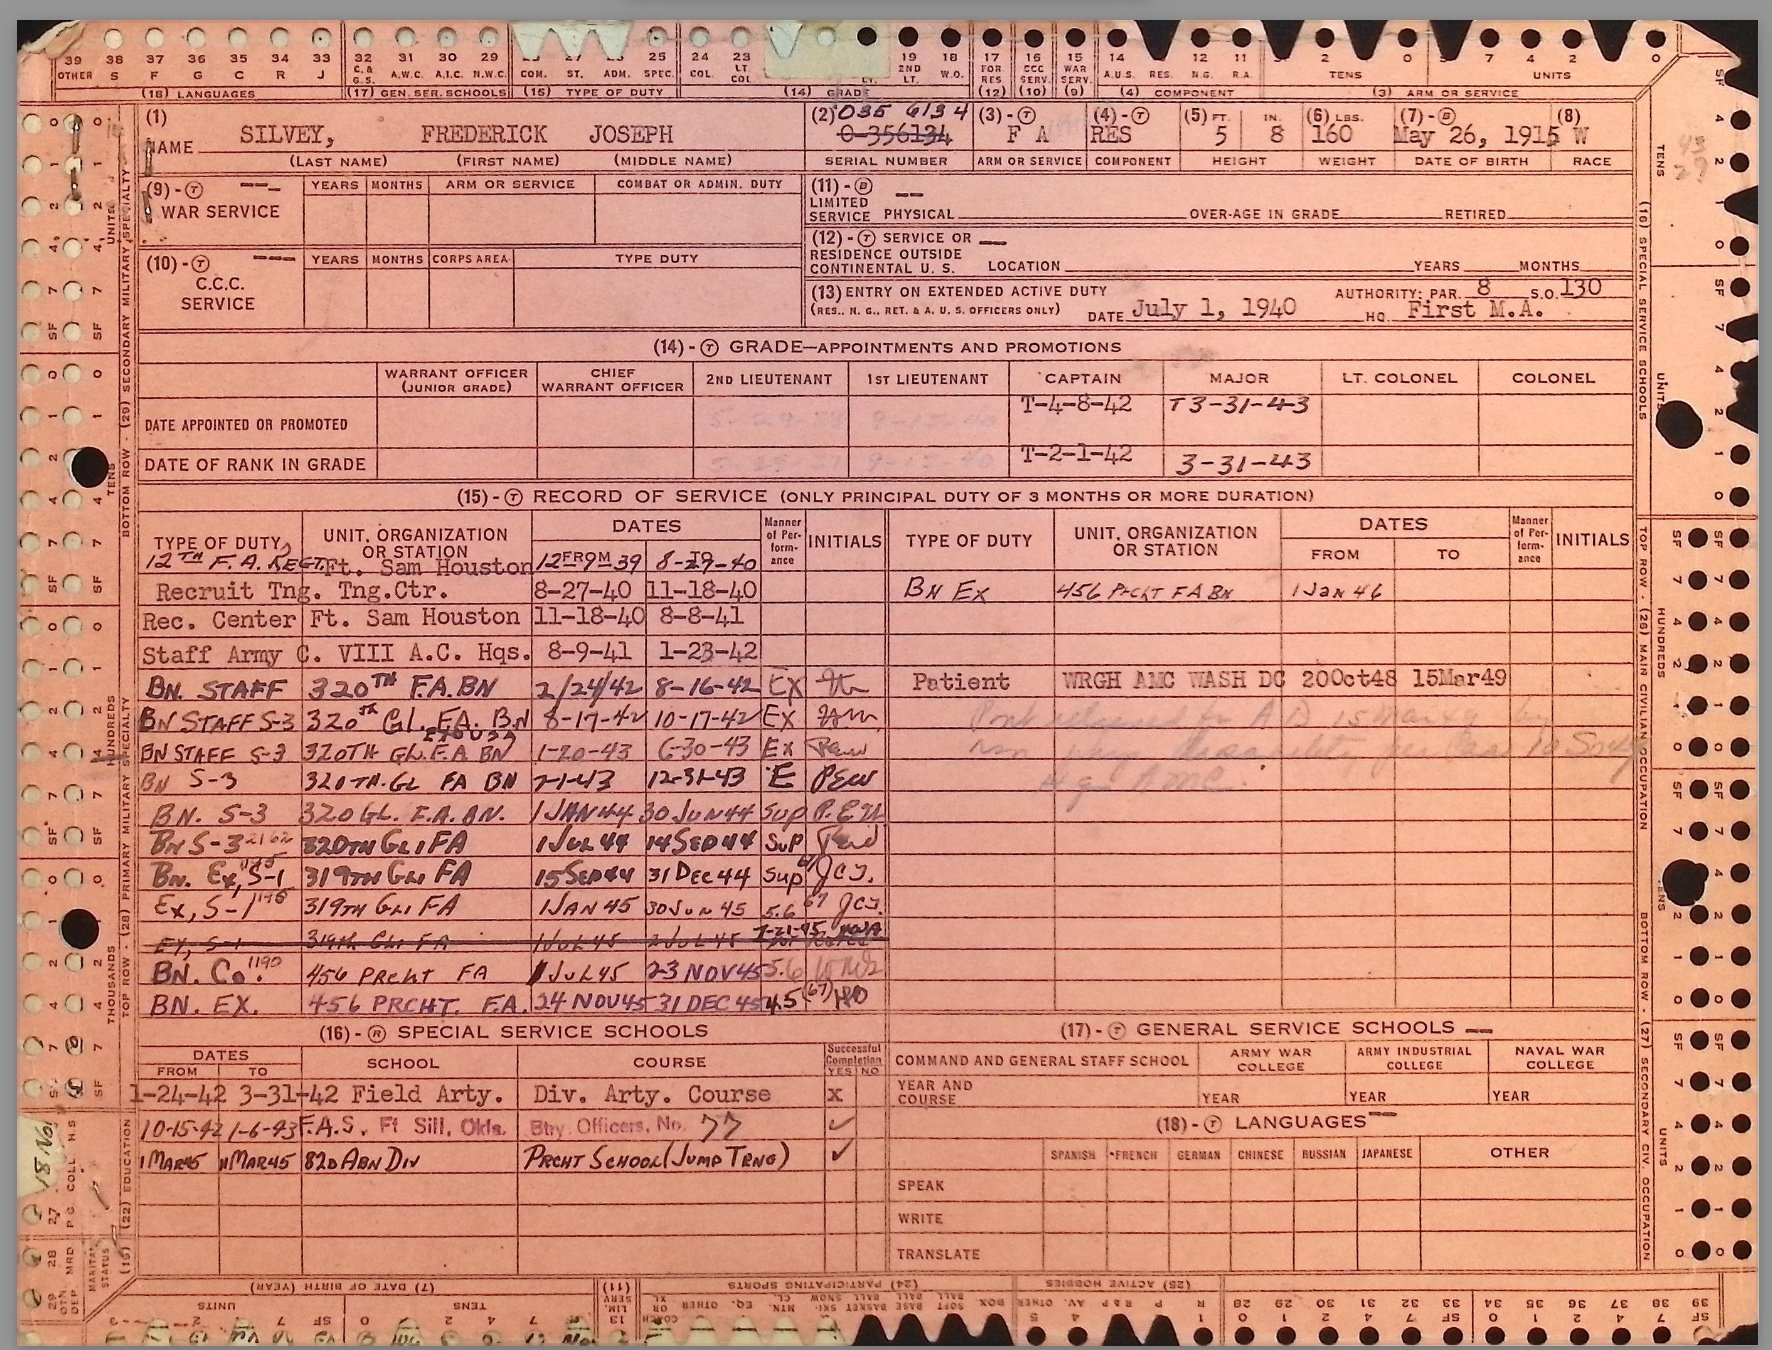 39 38 37 36 35 34 33 32 31 30 29 25 24 23 19 18 17 16 15 14 12 11
OTHER S F G C R J C.& G.S. A.W.C. A.I.C. N.W.C. COM. ST. ADM. SPEC. COL. LT. COL. 2ND LT. W.O. FOR RES. CCC SERV. WAR SERV. A.U.S. RES. N.G. R.A. TENS UNITS
(18) LANGUAGES (17) GEN. SER. SCHOOLS (15) TYPE OF DUTY (14) GRADE (12) (10) (9) (4) COMPONENT (3) ARM OR SERVICE
(1) (2) 035 6134 (3)-T (4)-T (5) FT. IN. (6) LBS. (7)-B (8)
NAME SILVEY, FREDERICK JOSEPH O-356134 F A RES 5 8 160 May 26, 1915 W
(LAST NAME) (FIRST NAME) (MIDDLE NAME) SERIAL NUMBER ARM OR SERVICE COMPONENT HEIGHT WEIGHT DATE OF BIRTH RACE
(9)-T --- WAR SERVICE YEARS MONTHS ARM OR SERVICE COMBAT OR ADMIN. DUTY
(11)-B -- LIMITED SERVICE PHYSICAL OVER-AGE IN GRADE RETIRED
(12)-T SERVICE OR RESIDENCE OUTSIDE CONTINENTAL U. S. -- LOCATION YEARS MONTHS
(10)-T --- C.C.C. SERVICE YEARS MONTHS CORPS AREA TYPE DUTY
(13) ENTRY ON EXTENDED ACTIVE DUTY AUTHORITY: PAR. 8 S.O. 130
(RES., N. G., RET. & A. U. S. OFFICERS ONLY) DATE July 1, 1940 HQ. First M.A.
(14)-T GRADE—APPOINTMENTS AND PROMOTIONS
WARRANT OFFICER (JUNIOR GRADE) CHIEF WARRANT OFFICER 2ND LIEUTENANT 1ST LIEUTENANT CAPTAIN MAJOR LT. COLONEL COLONEL
DATE APPOINTED OR PROMOTED T-4-8-42 T 3-31-43
DATE OF RANK IN GRADE T-2-1-42 3-31-43
(15)-T RECORD OF SERVICE (ONLY PRINCIPAL DUTY OF 3 MONTHS OR MORE DURATION)
TYPE OF DUTY UNIT, ORGANIZATION OR STATION DATES FROM TO Manner of Performance INITIALS TYPE OF DUTY UNIT, ORGANIZATION OR STATION DATES FROM TO Manner of Performance INITIALS
12TH F. A. REGT. Ft. Sam Houston 8-29-40
Recruit Tng. Tng.Ctr. 8-27-40 11-18-40 BN EX 456 PRCHT FA BN 1 Jan 46
Rec. Center Ft. Sam Houston 11-18-40 8-8-41
Staff Army C. VIII A.C. Hqs. 8-9-41 1-23-42
BN. STAFF 320TH F.A. BN 2/24/42 8-16-42 EX Patient WRGH AMC WASH DC 20Oct48 15Mar49
BN STAFF S-3 320th GL. F.A. BN 8-17-42 10-17-42 EX
BN STAFF S-3 320TH GL. F.A BN 1-20-43 6-30-43 Ex
BN S-3 320TH. GL FA BN 7-1-43 12-31-43 E PEW
BN. S-3 320 GL. F.A. BN. 1 JAN 44 30 JUN 44 Sup
BN S-3 2162 320TH GLI FA 1 JUL 44 14 SEP 44 SUP
BN. EX, S-1 319TH GLI FA 15 SEP 44 31 DEC 44 Sup
EX, S-1 319TH GLI FA 1 JAN 45 30 JUN 45 5.6 67
EX, S-1 319th Gli FA 1 Jul 45 2 Jul 45
BN. Co. 1190 456 PRCHT FA 1 JUL 45 23 NOV 45 5.6
BN. EX. 456 PRCHT. F.A. 24 NOV 45 31 DEC 45 4.5 (67)
(16)-R SPECIAL SERVICE SCHOOLS (17)-T GENERAL SERVICE SCHOOLS --
DATES FROM TO SCHOOL COURSE Successful Completion YES NO COMMAND AND GENERAL STAFF SCHOOL ARMY WAR COLLEGE ARMY INDUSTRIAL COLLEGE NAVAL WAR COLLEGE
1-24-42 3-31-42 Field Arty. Div. Arty. Course X YEAR AND COURSE YEAR YEAR YEAR
10-15-42 1-6-43 F.A.S. Ft Sill, Okla. Btry. Officers, No. 77 ✓ (18)-T LANGUAGES --
1 MAR45 11 MAR45 82D ABN DIV PRCHT SCHOOL (JUMP TRNG) ✓ SPANISH FRENCH GERMAN CHINESE RUSSIAN JAPANESE OTHER
SPEAK
WRITE
TRANSLATE
(29) SECONDARY MILITARY SPECIALTY
BOTTOM ROW
(28) PRIMARY MILITARY SPECIALTY
TOP ROW
(22) EDUCATION
(19) MARITAL STATUS
(16) SPECIAL SERVICE SCHOOLS
TOP ROW - (26) MAIN CIVILIAN OCCUPATION
BOTTOM ROW - (27) SECONDARY CIV. OCCUPATION
(7) DATE OF BIRTH (YEAR) (11) (24) PARTICIPATING SPORTS (25) ACTIVE HOBBIES